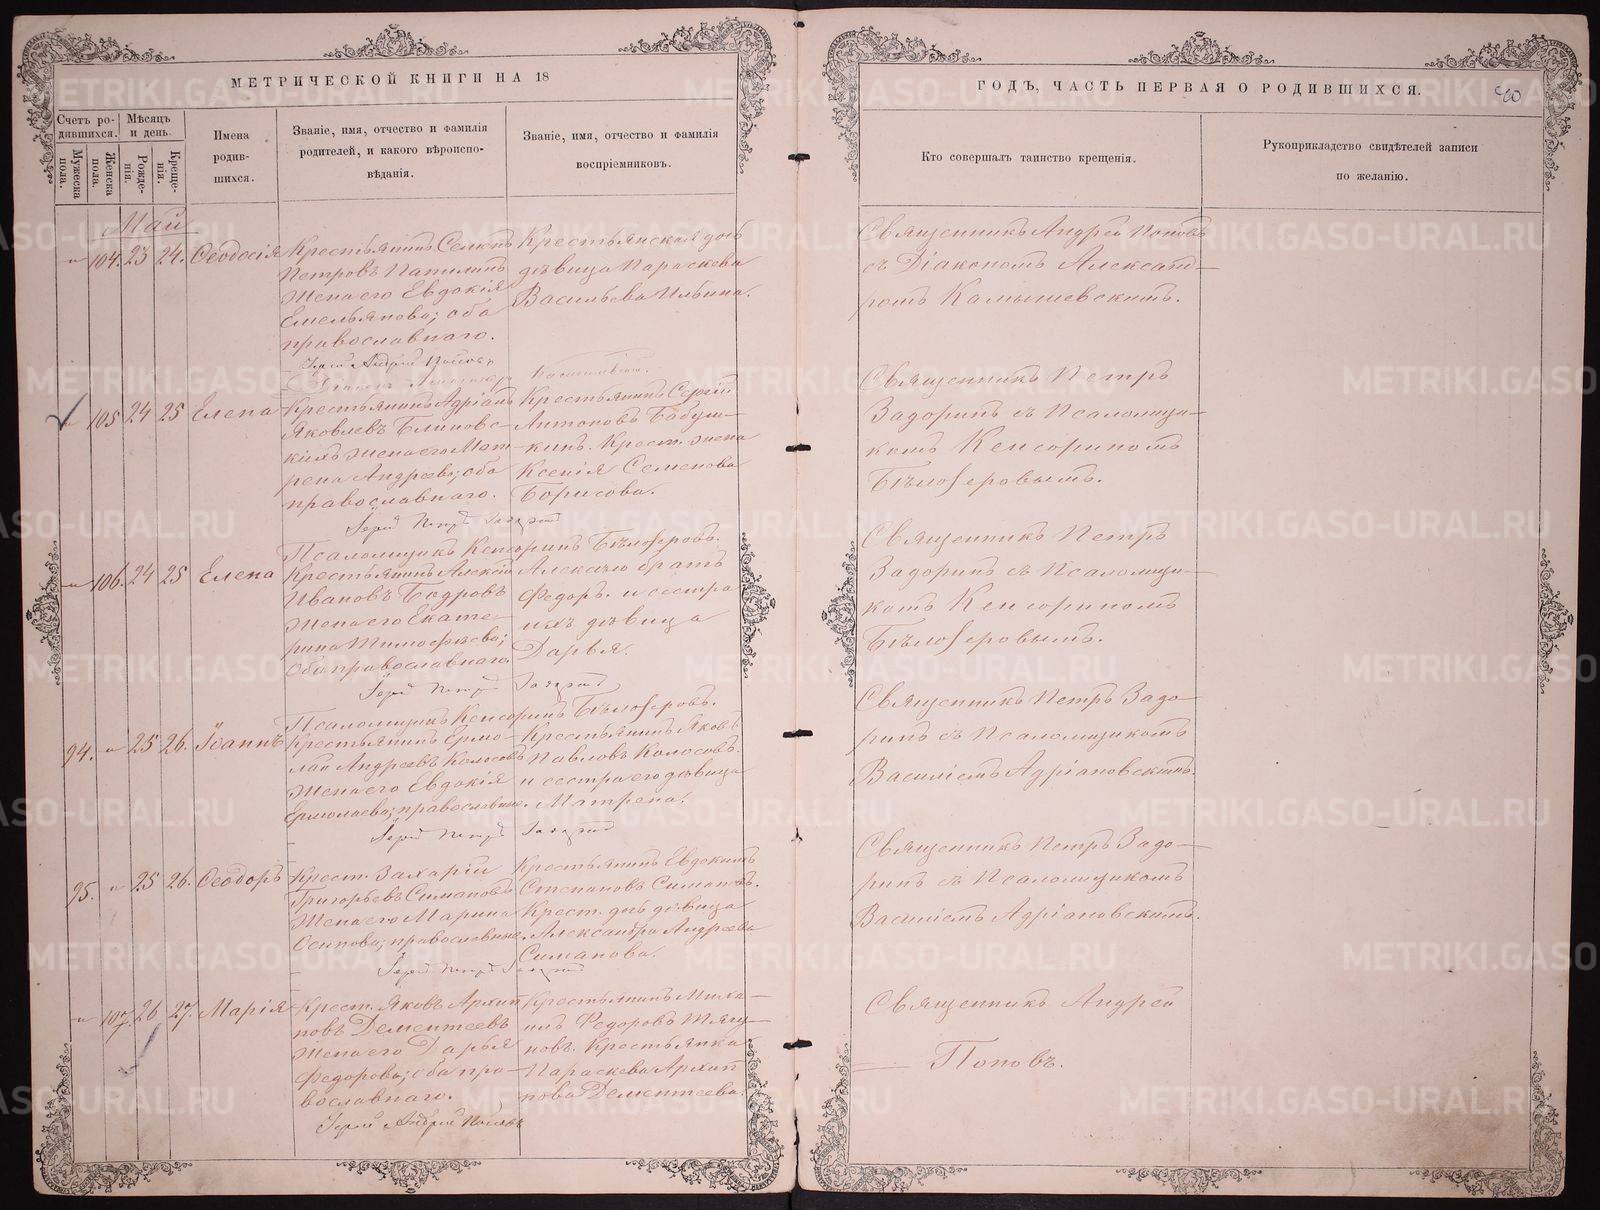 МЕТРИЧЕСКОЙ КНИГИ НА 18
Счетъ ро-
дившихся.
Мѣсяцъ
и день.
Мужеска
пола.
Женска
пола.
Рожде-
нія.
Креще-
нія.
Имена
родив-
шихся.
Званіе, имя, отчество и фамилія
родителей, и какого вѣроиспо-
вѣданія.
Званіе, имя, отчество и фамилія
воспріемниковъ.
Май
" 104. 23 24. Ѳеодосія
Крестьянинъ
Петровъ
Жена его Евдокія
Емельянова; оба
православнаго.
Крестьянская дочь
дѣвица Параскева
Васильева Ильина.
Іерей Андрей Поповъ
" 105 24 25 Елена
Крестьянинъ Адріанъ
Яковлевъ Блиновс-
кихъ жена его Мат-
рена Андреева; оба
православнаго.
Крестьянинъ Сергій
Антоновъ Бабуш-
кинъ. Крест. жена
Ксенія Семенова
Борисова.
Іерей Петръ Задоринъ
Псаломщикъ Кенсоринъ Бѣлозеровъ.
" 106. 24 25 Елена
Крестьянинъ Алексій
Ивановъ Бодровъ
Жена его Екате-
рина Тимофѣева;
Оба православнаго.
Алексѣю братъ
Федоръ. и сестра
ихъ дѣвица
Дарья.
Іерей Петръ Задоринъ
Псаломщикъ Кенсоринъ Бѣлозеровъ.
94. " 25 26. Іоаннъ
Крестьянинъ Ермо-
лай Андреевъ Колосовъ
Жена его Евдокія
Ермолаева; православные.
Крестьянинъ Яковъ
Павловъ Колосовъ.
и сестра его дѣвица
Матрена.
Іерей Петръ Задоринъ
95. " 25 26. Ѳеодоръ
Крест. Захарій
Григорьевъ Симановъ
Жена его Марина
Осипова; православные.
Крестьянинъ Евдокимъ
Степановъ Симановъ.
Крест. дчь дѣвица
Александра Андреева
Симанова.
Іерей Петръ Задоринъ
" 107. 26 27. Марія
Крест. Яковъ Архип
повъ Дементеевъ
Жена его Дарья
Федорова; оба пра-
вославнаго.
Крестьянинъ Миха-
илъ Федоровъ Тягу-
новъ. Крестьянка
Параскева Архип
пова Дементеева.
Іерей Андрей Поповъ
ГОДЪ, ЧАСТЬ ПЕРВАЯ О РОДИВШИХСЯ.
Кто совершалъ таинство крещенія.
Рукоприкладство свидѣтелей записи
по желанію.
Священникъ Андрей Поповъ
съ Діакономъ Александ-
ромъ Камышевскимъ.
Священникъ Петръ
Задоринъ съ Псаломщи-
комъ Кенсориномъ
Бѣлозеровымъ.
Священникъ Петръ
Задоринъ съ Псаломщи-
комъ Кенсориномъ
Бѣлозеровымъ.
Священникъ Петръ Задо-
ринъ съ Псаломщикомъ
Василіемъ Адріановскимъ.
Священникъ Петръ Задо-
ринъ съ Псаломщикомъ
Василіемъ Адріановскимъ.
Священникъ Андрей
Поповъ.
METRIKI.GASO-URAL.RU